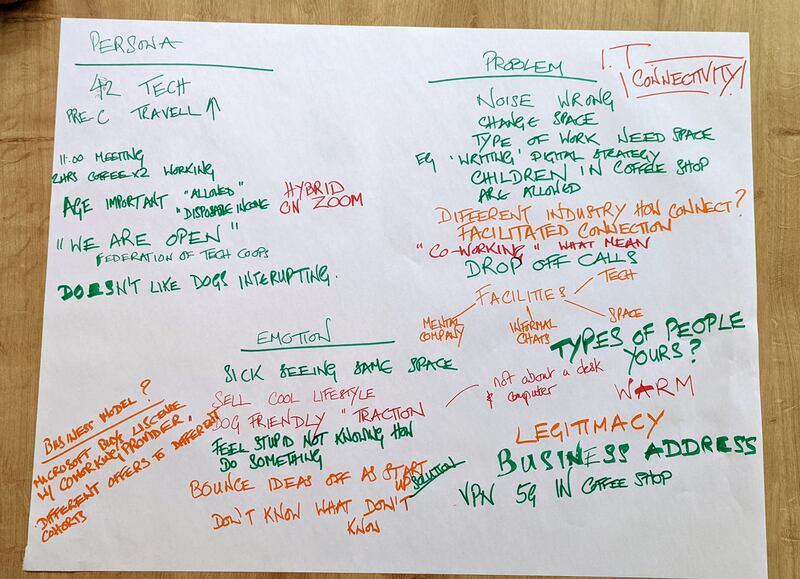 PERSONA
42 TECH
PRE-C TRAVELL ↑
11:00 MEETING
2HRS COFFEE x2 WORKING
AGE IMPORTANT "ALLOWED"
"DISPOSABLE INCOME
HYBRID
ON ZOOM
"WE ARE OPEN"
FEDERATION OF TECH COOPS
DOESN'T LIKE DOGS INTERUPTING.
PROBLEM
I.T
CONNECTIVITY
NOISE WRONG
CHANGE SPACE
TYPE OF WORK NEED SPACE
EG 'WRITING' DIGITAL STRATEGY
CHILDREN IN COFFEE SHOP
ARE ALLOWED
DIFFERENT INDUSTRY HOW CONNECT?
FACILITATED CONNECTION
"CO-WORKING" WHAT MEAN
DROP OFF CALLS
FACILITIES
TECH
MENTAL
COMPANY
INFORMAL
CHATS
SPACE
TYPES OF PEOPLE
YOURS?
WARM
LEGITIMACY
BUSINESS ADDRESS
VPN 5G IN COFFEE SHOP
EMOTION
SICK SEEING SAME SPACE
SELL COOL LIFESTYLE
DOG FRIENDLY "TRACTION
not about a desk
& computer
FEEL STUPID NOT KNOWING HOW
DO SOMETHING
BOUNCE IDEAS OFF AS START
UP
SOLUTION
DON'T KNOW WHAT DON'T
KNOW
BUSINESS MODEL?
MICROSOFT BUYS LISCENSE
W/ COWORKING PROVIDER.
DIFFERENT OFFERS TO DIFFERENT
COHORTS